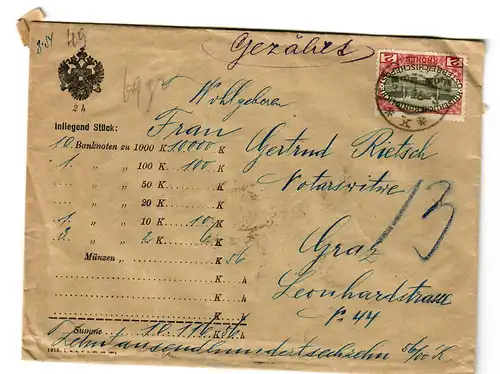 49
Gezählt
2 h
69 gr
Wohlgeboren
Inliegend Stück:
Frau
10 Banknoten zu 1000 K 10000 K
Gertrud Rietsch
1. „ „ 100 K. 100 K
Notarswitwe
„ „ 50 K K
„ „ 20 K K
13
1. „ „ 10 K 10 K
Graz
3. „ „ 2 K 6 K
Münzen „ K 56
Leonhardstrasse
K h
K h
K h
Nº 44
Summe 10.116 K 56 h
Zehntausendhundertsechzehn 56/00 K